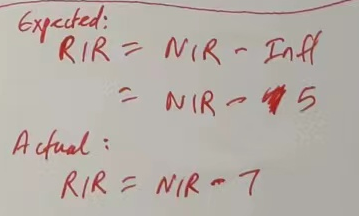 Expected:
RIR = NIR - Infl
= NIR - 5
Actual:
RIR = NIR - 7